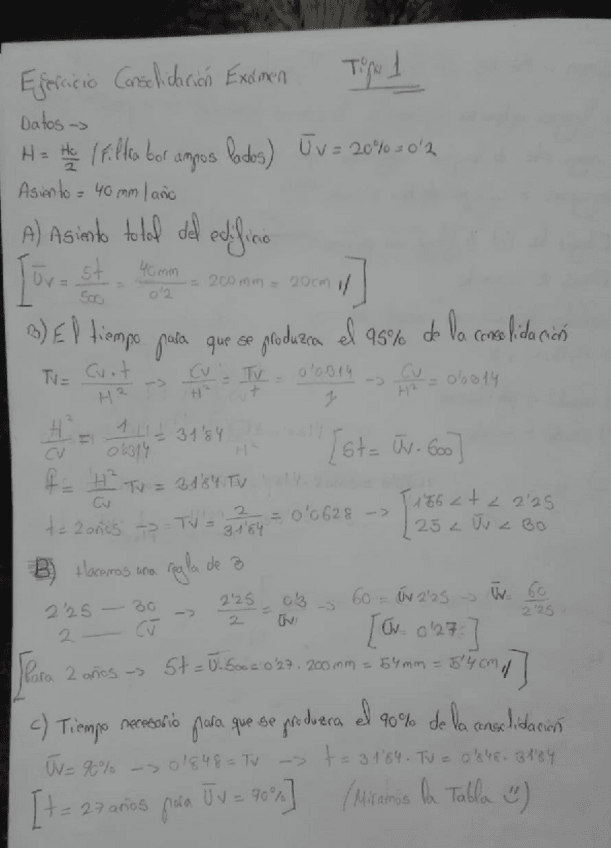 Ejercicio Consolidación Exámen Tipo 1
Datos →
H = Hc/2 (Filtra por ampos lados) Ūv = 20% = 0'2
Asiento = 40 mm/año
A) Asiento total del edificio
[Ūv = St/S∞ = 40mm/0'2 = 200mm = 20cm //]
B) El tiempo para que se produzca el 95% de la consolidación
Tv = Cv·t/H² → Cv/H² = Tv/t = 0'0314/1 → Cv/H² = 0'0314
H²/Cv = 1/0'0314 = 31'84 [St = Ūv·S∞]
t = H²/Cv Tv = 31'84 Tv
t = 2 años → Tv = 2/31'84 = 0'0628 → [1'56 < t < 2'25
25 < Ūv < 30
B) Hacemos una regla de 3
2'25 — 30 → 2'25/2 = 0'3/Ūv → 60 = Ūv 2'25 → Ūv = 60/2'25
2 — Ūv [Ūv = 0'27]
[Para 2 años → St = Ū·S∞ = 0'27 · 200mm = 54mm = 5'4cm //]
C) Tiempo necesario para que se produzca el 90% de la consolidación
Ūv = 90% → 0'848 = Tv → t = 31'84 · Tv = 0'848 · 31'84
[t = 27 años para Ūv = 90%] (Miramos la Tabla Ü)